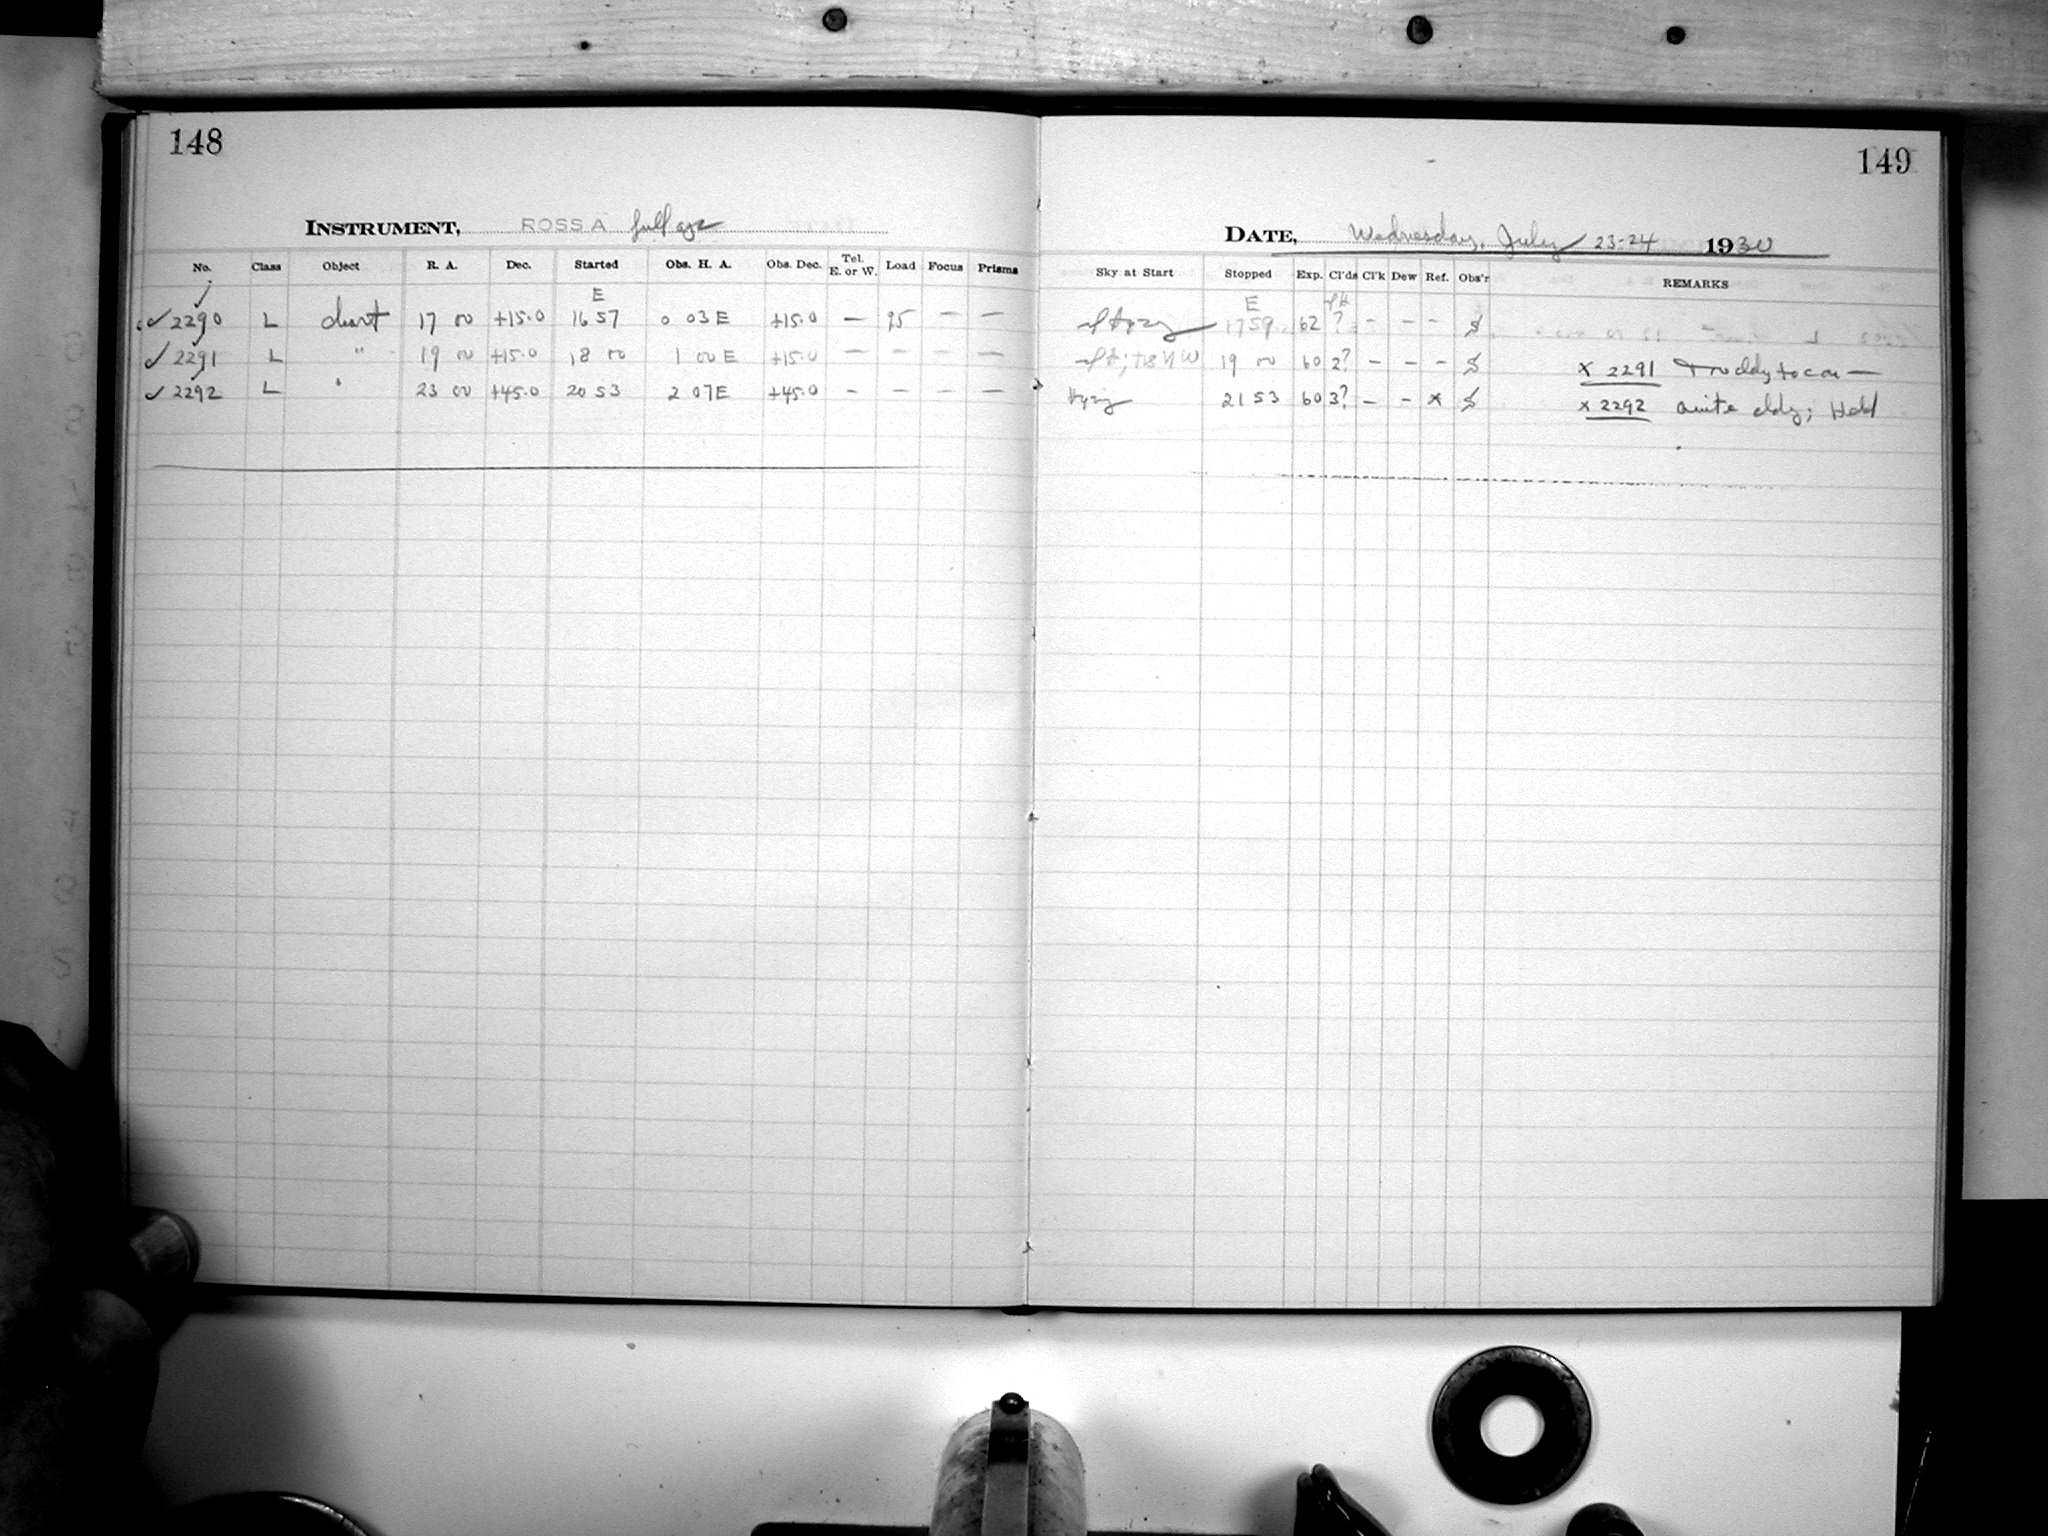 148
INSTRUMENT, ROSS A full ap
No. Class Object R. A. Dec. Started Obs. H. A. Obs. Dec. Tel. E. or W. Load Focus Prisms
E
✓ 2290 L chart 17 00 +15.0 16 57 0 03 E +15.0 — 95 — —
✓ 2291 L " 19 00 +15.0 18 00 1 00 E +15.0 — — — —
✓ 2292 L " 23 00 +45.0 20 53 2 07 E +45.0 — — — —
149
DATE, Wednesday, July 23-24 1930
Sky at Start Stopped Exp. Cl'ds Cl'k Dew Ref. Obs'r REMARKS
E
17 59 62 ? — — —
19 00 60 2? — — — x 2291
Hazy 21 53 60 3? — — x x 2292 Quite cldy; Held